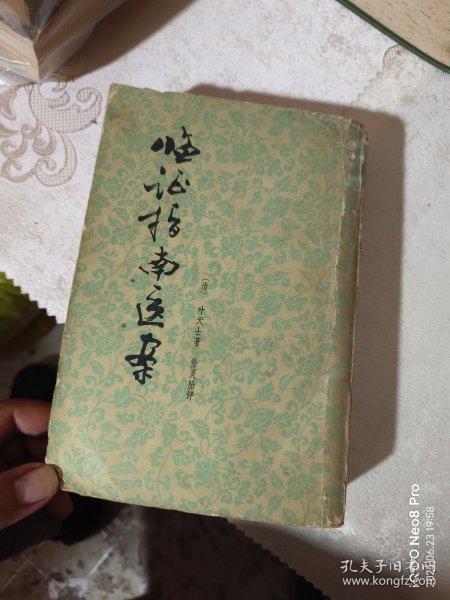 临证指南医案
〔清〕 叶天士著 徐灵胎评
iQOO Neo8 Pro
2023.06.23 19:58
孔夫子旧书网
www.kongfz.com